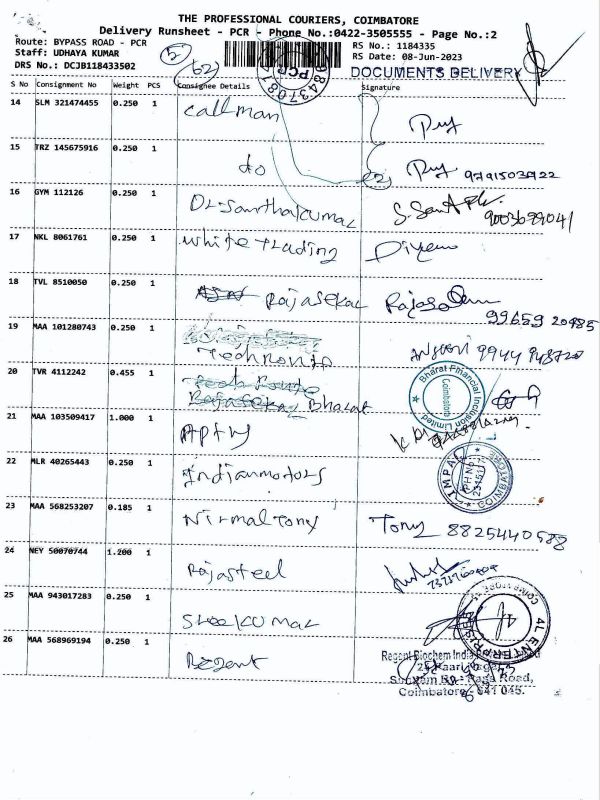 THE PROFESSIONAL COURIERS, COIMBATORE
Delivery Runsheet - PCR - Phone No.:0422-3505555 - Page No.:2
Route: BYPASS ROAD - PCR
Staff: UDHAYA KUMAR
DRS No.: DCJB118433502
RS No.: 1184335
RS Date: 08-Jun-2023
DOCUMENTS DELIVERY
S No Consignment No Weight PCS Consignee Details Signature
14 SLM 321474455 0.250 1 Callman
15 TRZ 145675916 0.250 1 do
16 GYM 112126 0.250 1 Dr-Santhakumar
17 NKL 8061761 0.250 1 White trading
18 TVL 8510050 0.250 1 Rajasekar 99659 20985
19 MAA 101280743 0.250 1 Techronta
20 TVR 4112242 0.455 1 Bharat
Bharat Financial Inclusion Limited
Coimbatore
21 MAA 103509417 1.000 1
22 MLR 40265443 0.250 1 Indianmotors
23 MAA 568253207 0.185 1 Nirmaltony Tony 8825440588
24 NEY 50070744 1.200 1 Rajasteel
25 MAA 943017283 0.250 1 Sreekumar
26 MAA 568969194 0.250 1 Regent
Regent Biochem India
Coimbatore - 641 045.